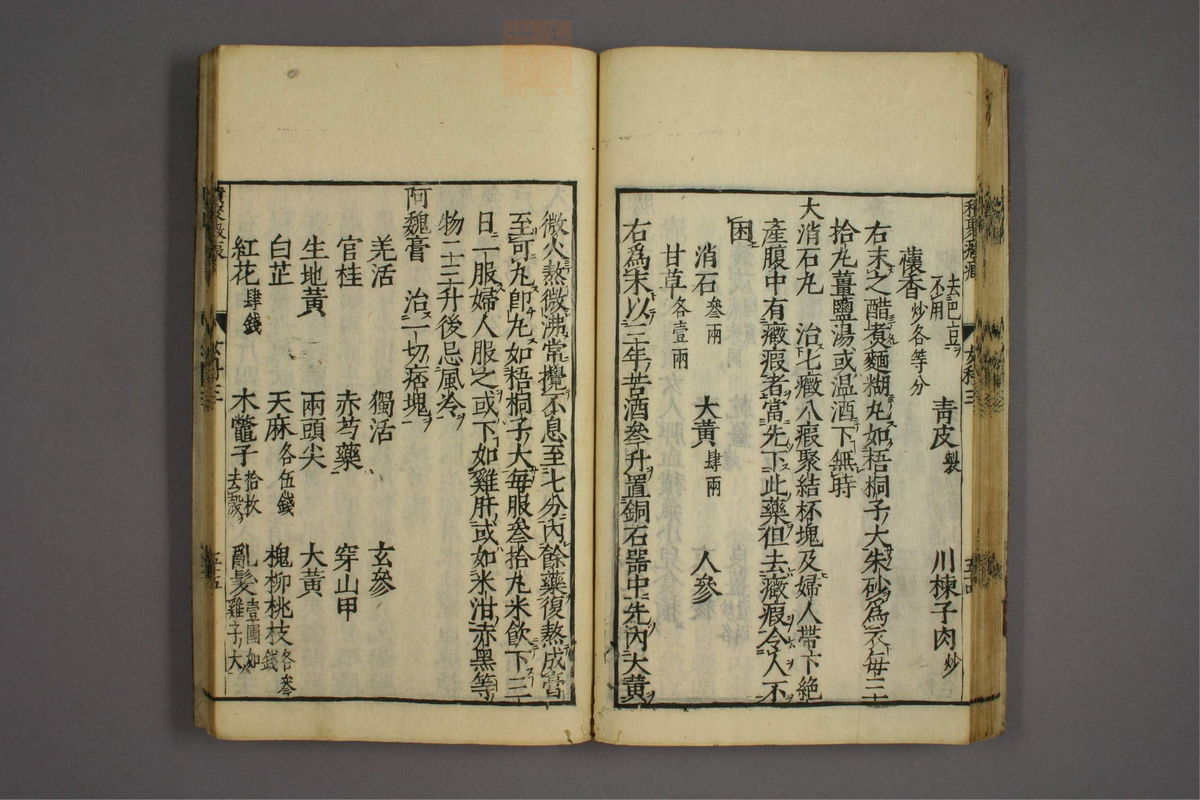 去巴豆不用 青皮製 川楝子肉炒
懷香炒各等分
右末之醋煮麵糊丸如梧桐子大朱砂為衣每二十
拾丸薑鹽湯或温酒下無時
大消石丸 治七癥八瘕聚結杯塊及婦人帶下絶
產腹中有癥瘕者當先下此藥但去癥瘕令人不
困
消石叄兩 大黄肆兩 人參
甘草各壹兩
右爲末以三年苦酒叄升置銅石器中先內大黄
微火熬微沸常攪不息至七分內餘藥復熬成膏
至可丸卽丸如梧桐子大每服叄拾丸米飲下三
日一服婦人服之或下如雞肝或如米泔赤黑等
物二三升後忌風冷
阿魏膏 治一切痞塊
羌活 獨活 玄參
官桂 赤芍藥 穿山甲
生地黄 兩頭尖 大黄
白芷 天麻各伍錢 槐柳桃枝各叄錢
紅花肆錢 木鼈子拾枚去殼 亂髮壹團如雞子大
女科三